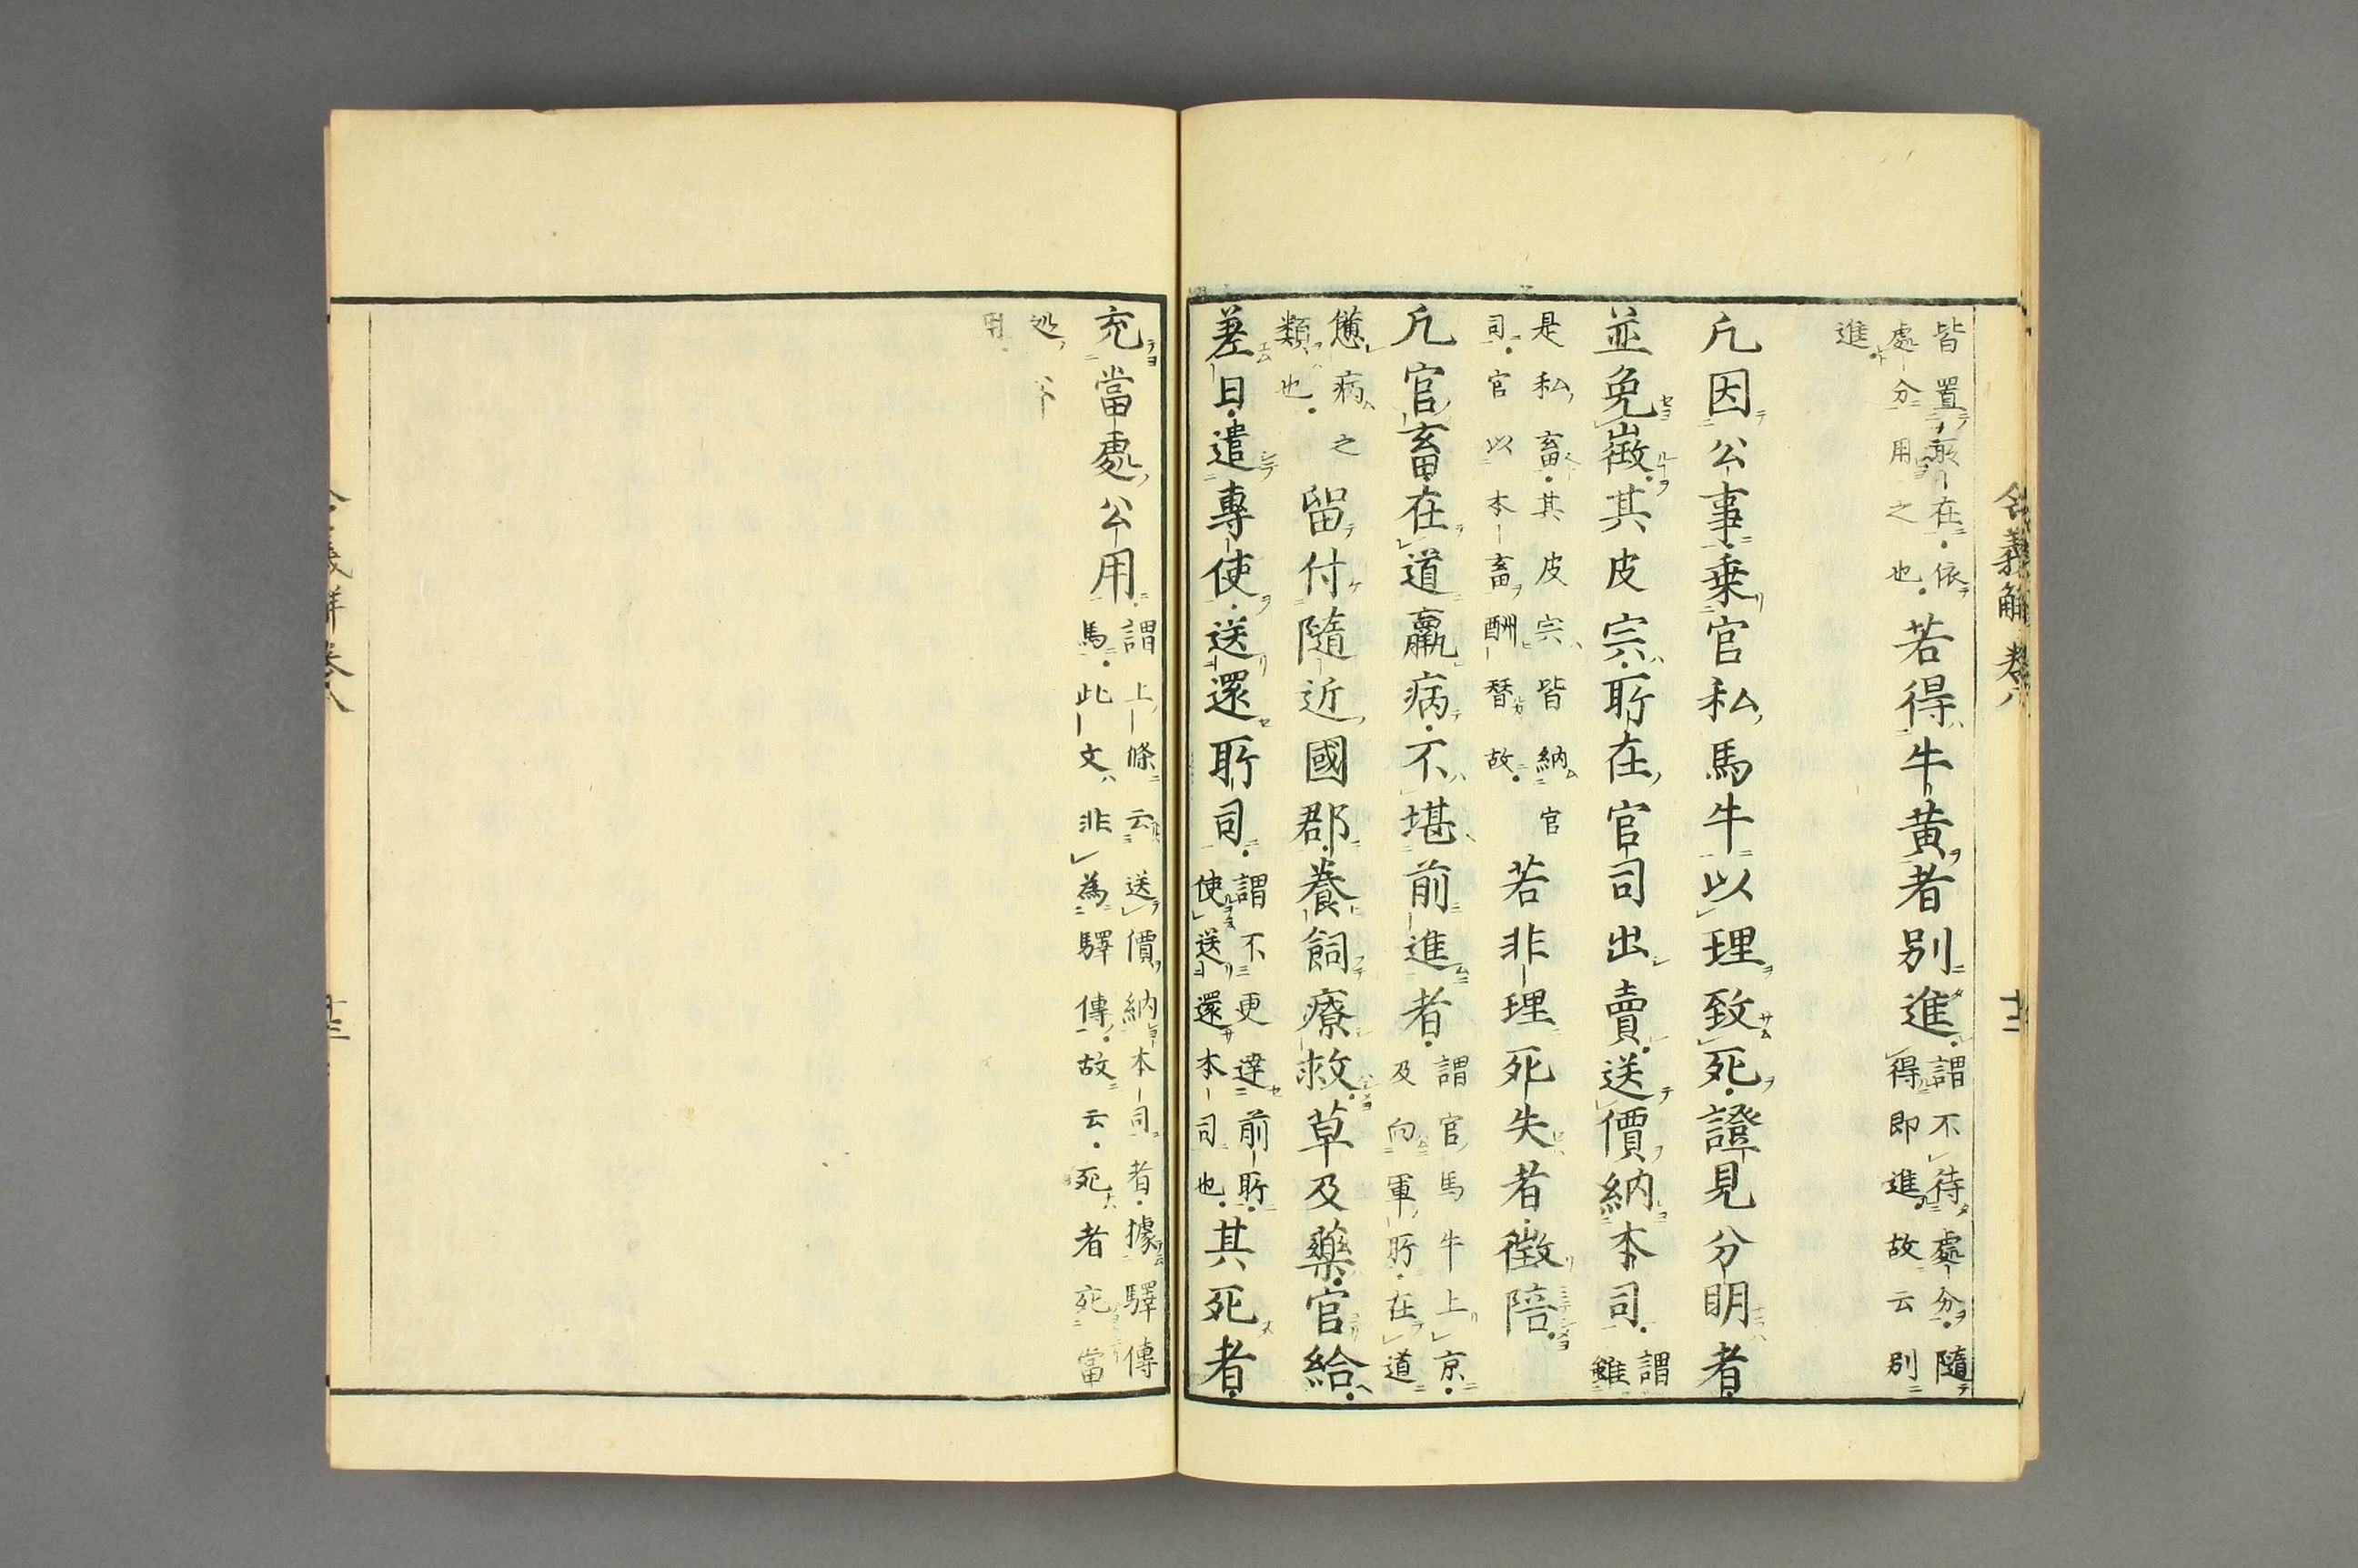 令義解 卷八 十二
皆置所在。依
處分用之也。
若得牛黄者別進。
謂不待處分。隨
得即進。故云別
進。
凢因公事乗官私馬牛以理致死。證見分明者。
並免徴。其皮宍。所在官司出賣。送價納本司。
謂
雖
是私畜。其皮宍皆納官
司。官以本畜酬替故。
若非理死失者。徴陪。
凢官畜在道羸病。不堪前進者。
謂官馬牛上京。
及向軍所。在道
憊病之
類也。
留付隨近國郡養飼療救。草及藥。官給。
差日。遣專使。送還所司。
謂不更達前所。
使送還本司也。
其死者。
充當處公用。
謂上條云送價納本司者。據驛傳
馬。此文非為驛傳。故云。死者死當
処
用。
令義解卷八 十三